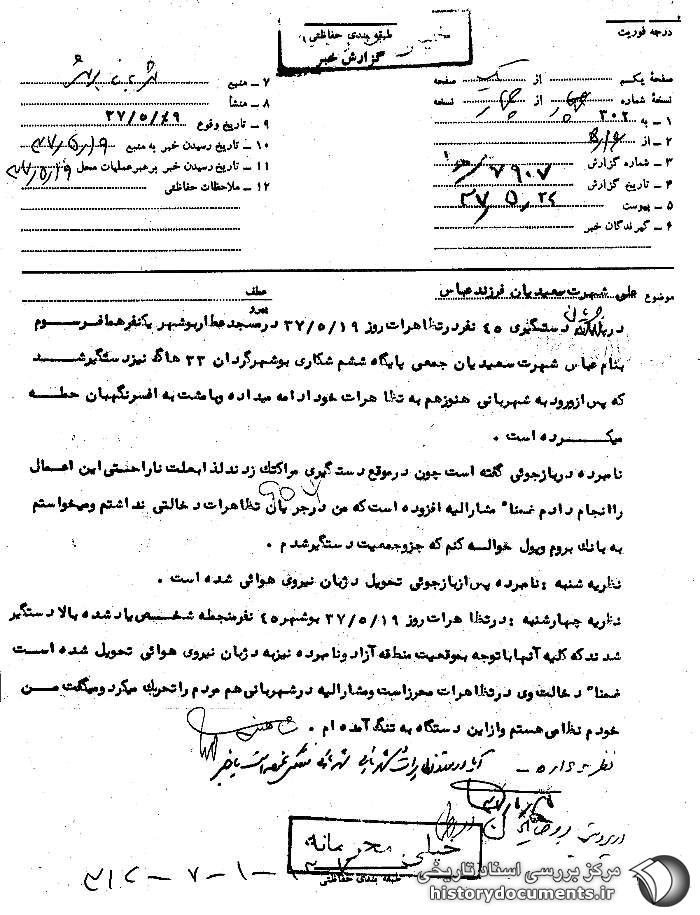 درجه فوریت
طبقه بندی حفاظتی
گزارش خبر
صفحه یکم از یک صفحه
نسخه شماره چهار از چهار نسخه
۱ ـ به ۳۰۲
۲ ـ از
۳ ـ شماره گزارش ۷۹۰۷
۴ ـ تاریخ گزارش ۳۷/۵/۲۴
۵ ـ پیوست
۶ ـ گیرندگان خبر
۷ ـ منبع
۸ ـ منشأ
۹ ـ تاریخ وقوع ۳۷/۵/۱۹
۱۰ ـ تاریخ رسیدن خبر به منبع ۳۷/۵/۱۹
۱۱ ـ تاریخ رسیدن خبر برهبر عملیات محل ۳۷/۵/۱۹
۱۲ ـ ملاحظات حفاظتی
موضوع علی شهرت سعیدیان فرزند عباس
عطف
پیرو
دستگیری ۴۵ نفر در تظاهرات روز ۳۷/۵/۱۹ در مسجد عطار بوشهر یکنفر همافر سوم
بنام عباس شهرت سعیدیان جمعی پایگاه ششم شکاری بوشهر گردان ۲۳ هاگ نیز دستگیر شد
که پس از ورود به شهربانی هنوز هم به تظاهرات خود ادامه میداده و با مشت به افسر نگهبان حمله
میکرده است .
نامبرده در بازجوئی گفته است چون در موقع دستگیری مرا کتک زدند لذا بعلت ناراحتی این اعمال
را انجام دادم ضمنا" مشارالیه افزوده است که من در جریان تظاهرات دخالتی نداشتم و میخواستم
به بانک بروم و پول حواله کنم که جزو جمعیت دستگیر شدم .
نظریه شنبه : نامبرده پس از بازجوئی تحویل دژبان نیروی هوائی شده است .
نظریه چهارشنبه : در تظاهرات روز ۳۷/۵/۱۹ بوشهر ۴۵ نفر منجمله شخص یاد شده بالا دستگیر
شدند که کلیه آنها با توجه بموقعیت منطقه آزاد و نامبرده نیز به دژبان نیروی هوائی تحویل شده است
ضمنا" دخالت وی در تظاهرات محرز است و مشارالیه در شهربانی هم مردم را تحریک میکرد و میگفت من
خودم نظامی هستم و از این دستگاه به تنگ آمده ام .
خیلی محرمانه
طبقه بندی حفاظتی
۳۱۲-۷-۱-۱
مرکز بررسی اسناد تاریخی
historydocuments.ir